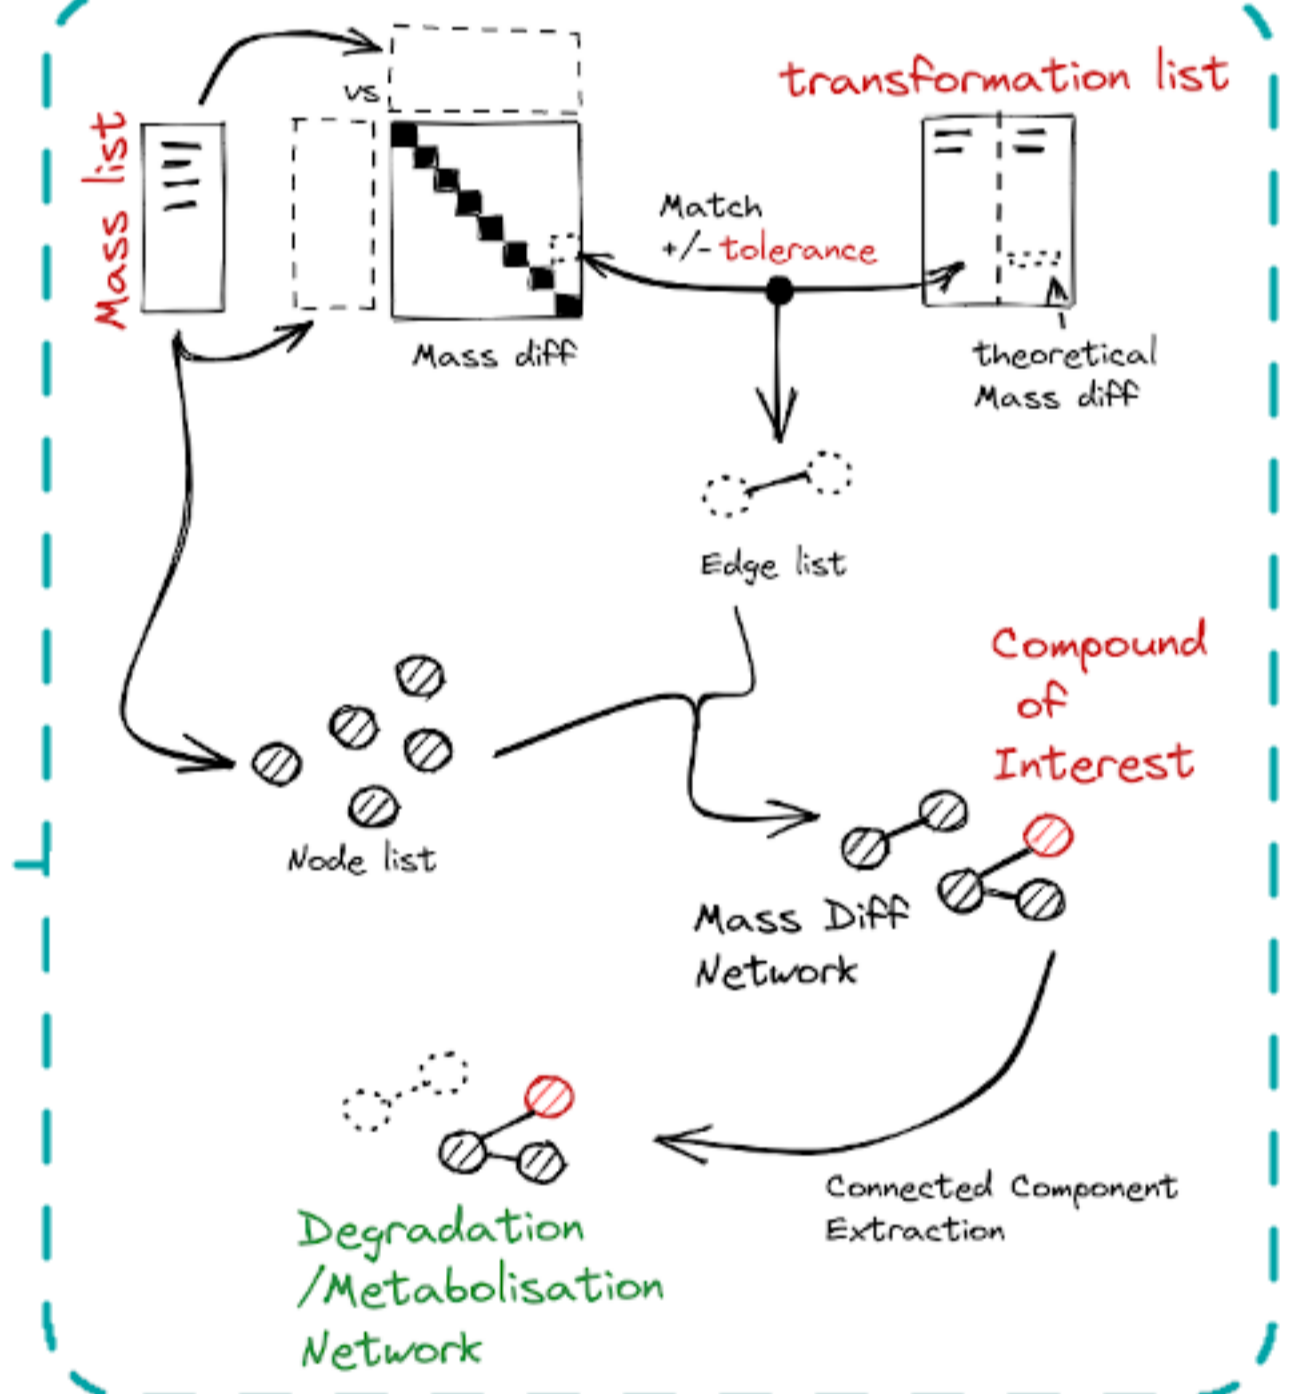 transformation list
vs
Mass list
Match
+/- tolerance
Mass diff
theoretical
Mass diff
Edge list
Compound
of
Interest
Node list
Mass Diff
Network
Connected Component
Extraction
Degradation
/Metabolisation
Network